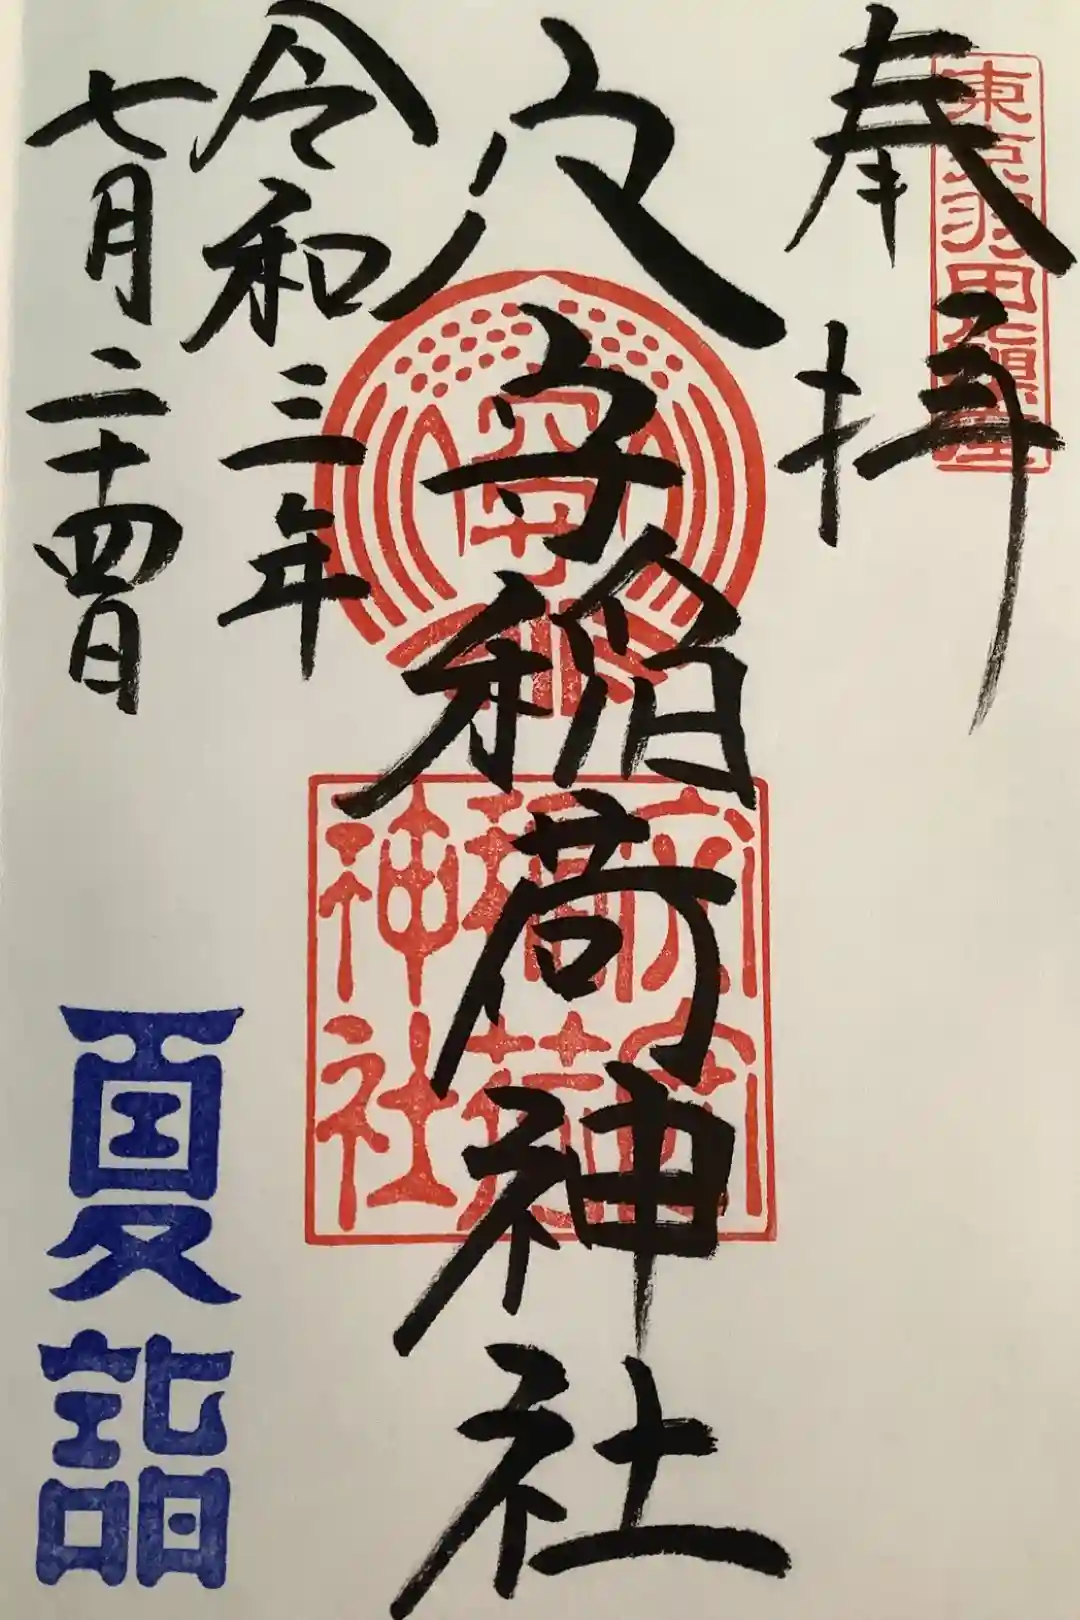 東京羽田鎮座
奉拝
穴守稲荷神社
穴守
穴守
稲荷
神社
令和三年
七月二十四日
夏詣